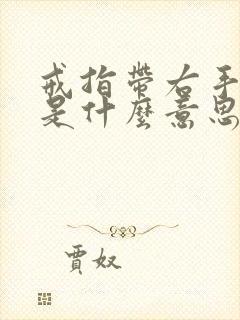 戒指帶右手
是什麼意思
賈奴